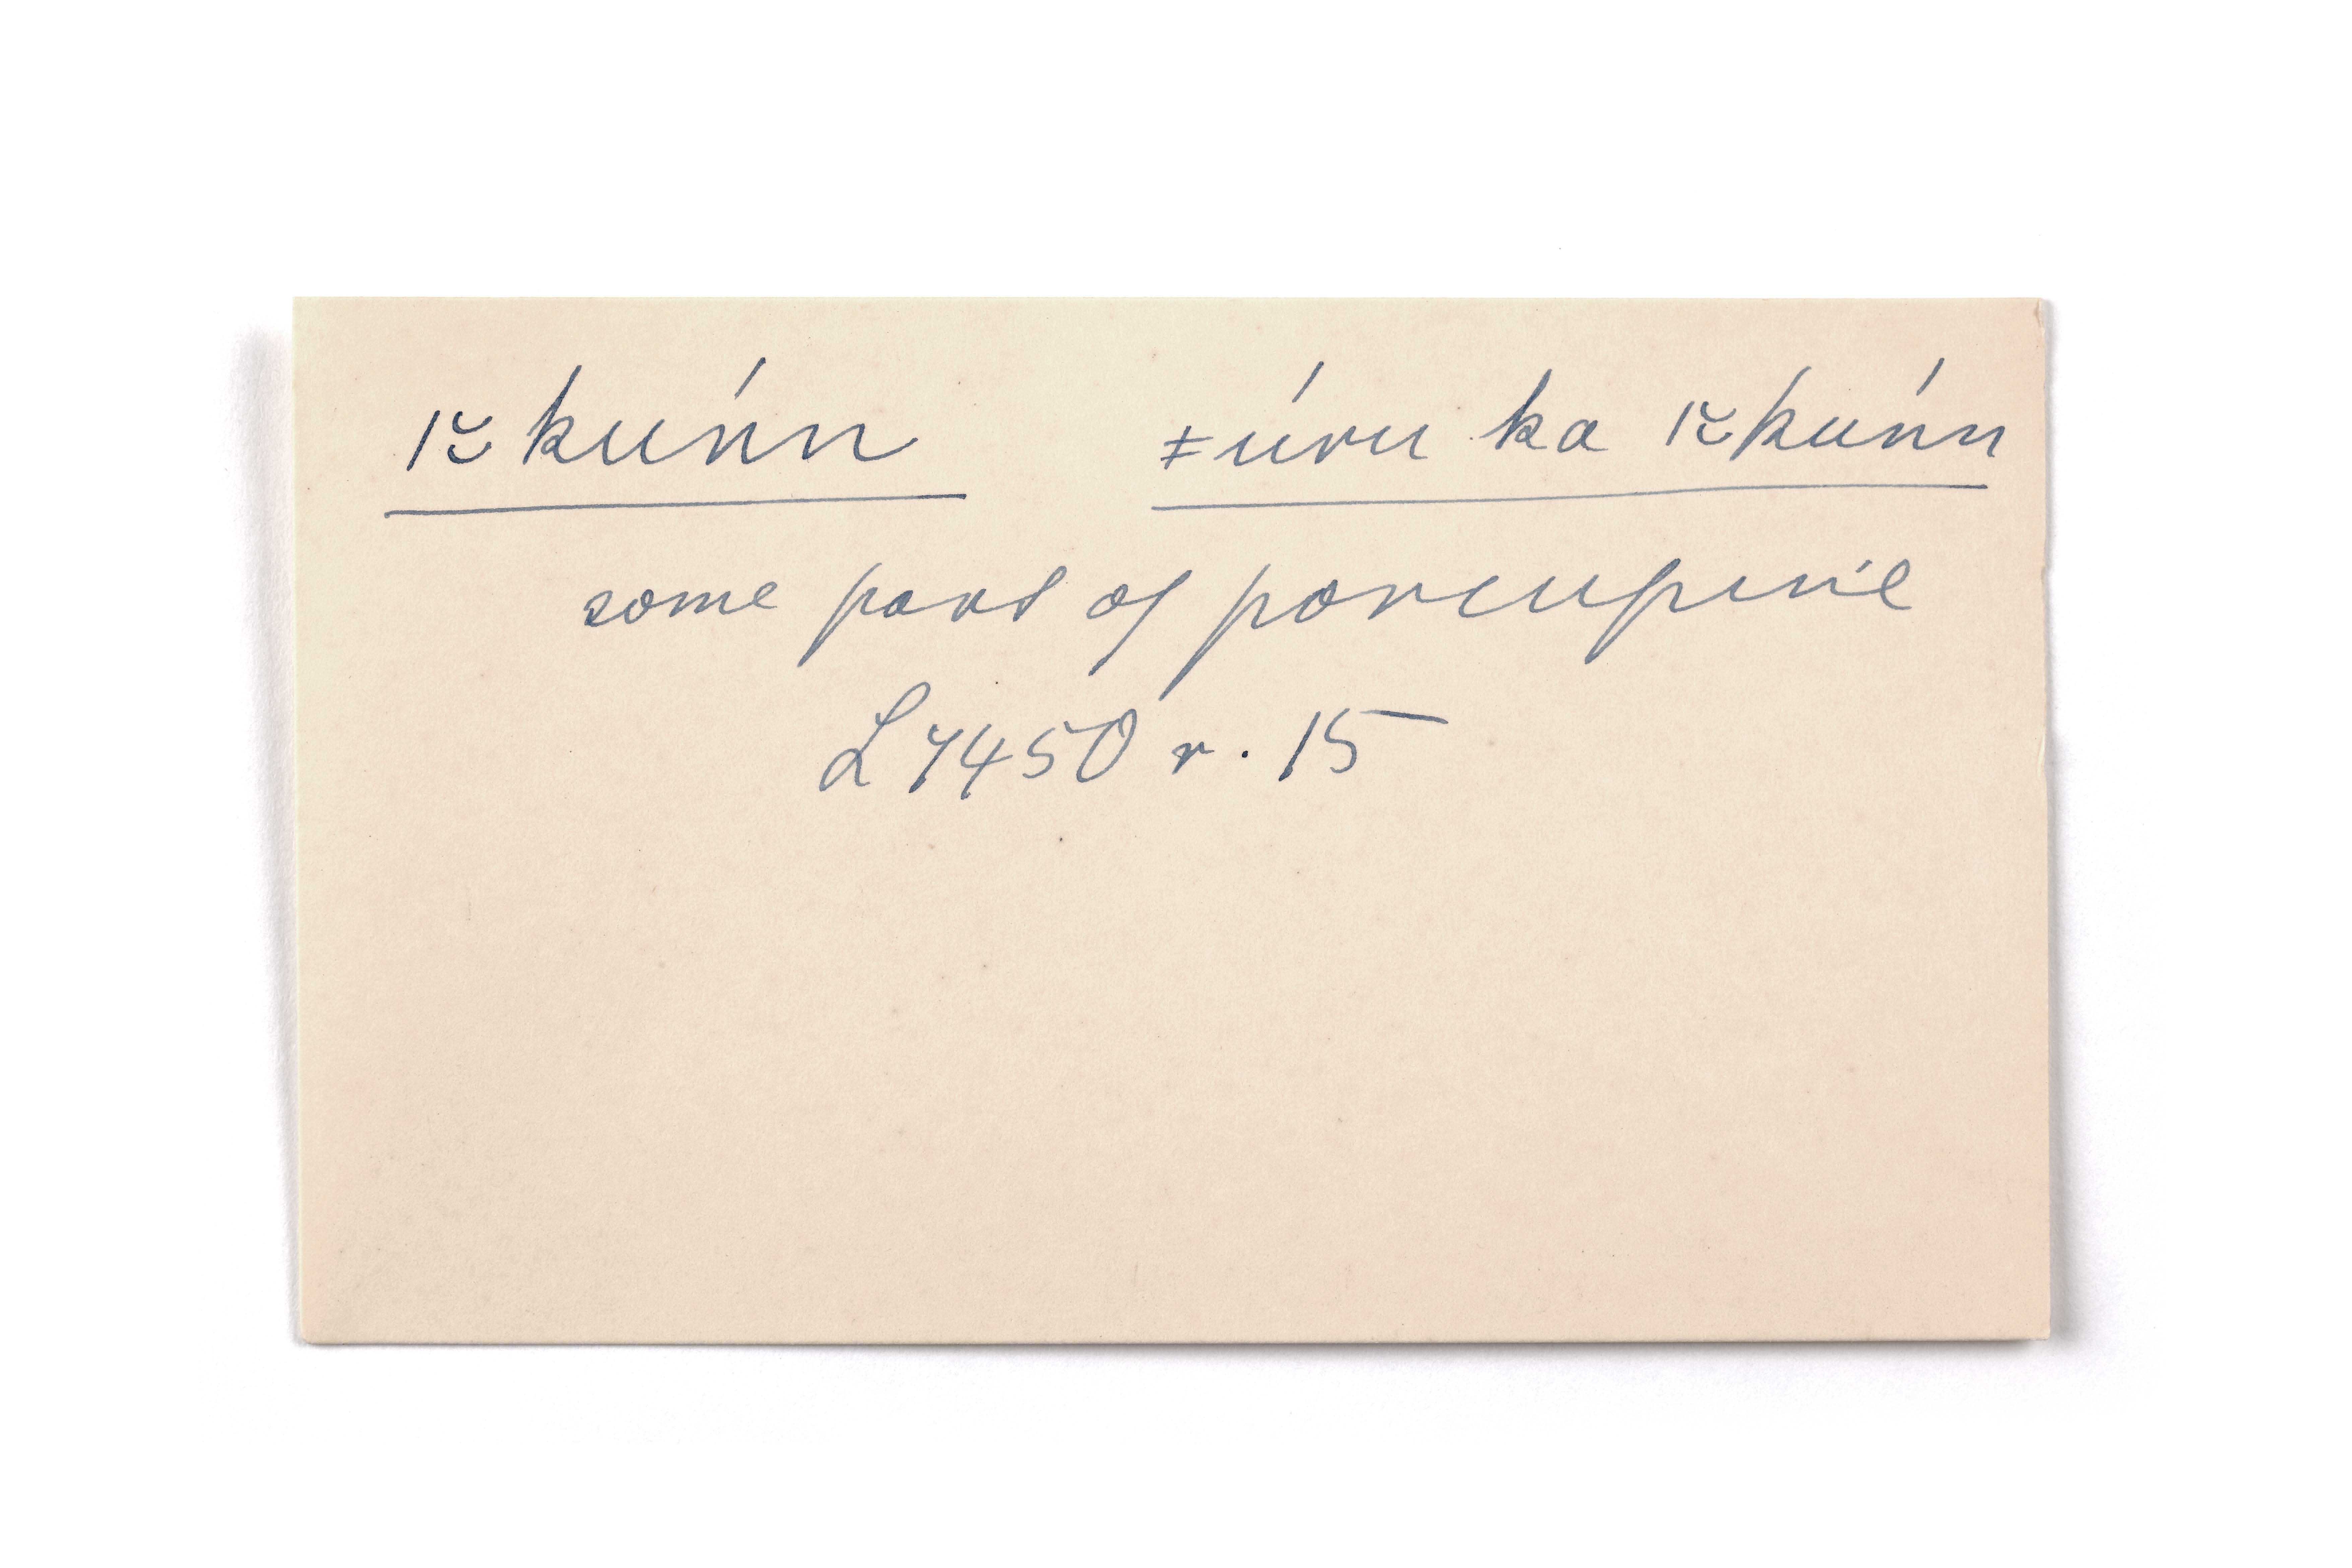 |ĩ kuńn ǂúru ka |ĩkuńn
some part of porcupine
L 7450 r. 15